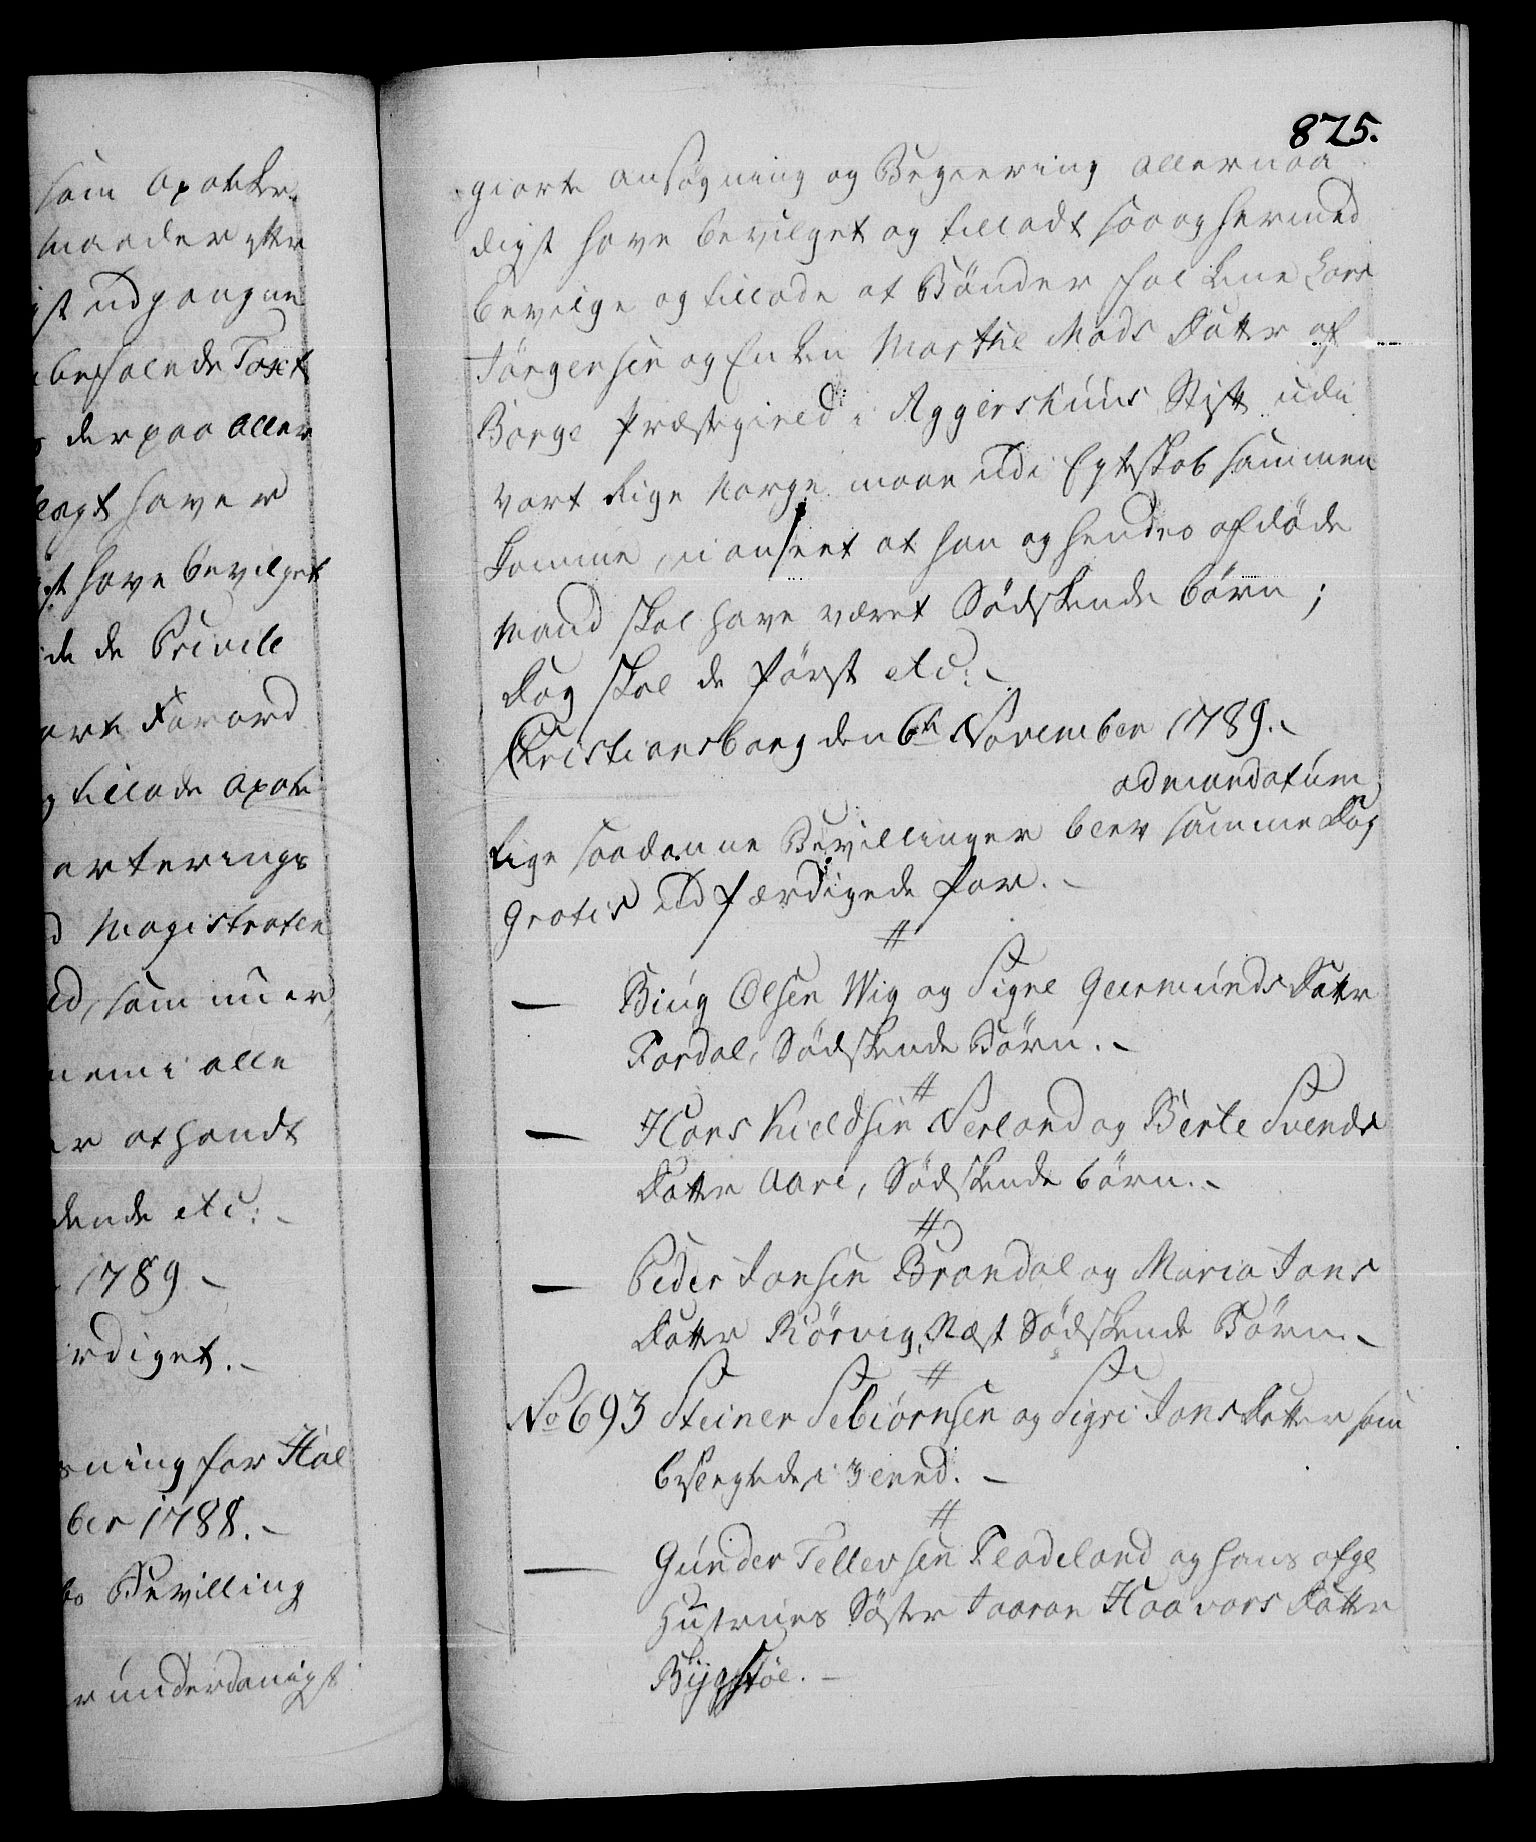 som Apoteker
maader yttr
ist udgangne
befalende Taxt
derpaa aller
lagt haver
gst have bevilget
de Privile
Forord
tillade Apote
arterings
Magistraten
ed, som nu er
nem i alle
er athandt
dende etc:
1789
erdiget.
ning for Hal
ber 1788.
Bevilling
underdanigst
825.
giorte ansøgning og Begiering allernaa
digst have bevilget og tilladt saa og hermed
bevilge og tillade at Bonder Lars
Jörgensen og Enken Marthe Mads Datter af
Borge Præstegield i Aggershuus Stift udi
vort Rige Norge maae udi Egteskab sammen
komme, uanseet at han og hendes afdöde
Mand skal have været Södskende börn;
Dog skal de först etc:
Christiansborg den 6te November 1789.
ad mandatum
Lige saadanne Bevillinger blev samme Dag
gratis udfærdigede for.
//
— Biug Olsen Wig og Signe Geermunds Datter
Fardal, Södskende Börn.
//
— Hans Kieldsen Nerland og Berte Svends
Datter Aare, Södskende börn.
//
— Peder Jansen Brandal og Maria Jans
Datter Rörvig, Næst Södskende Börn.
//
No 693 Steiner Sebiörnsen og Sigri Jons Datter som
beslegtede i 3 Leed.
//
— Gunder Tellevsen Fladeland og hans afg:
Hustrues Söster Jaaran Haavars Datter
Bygstöl.